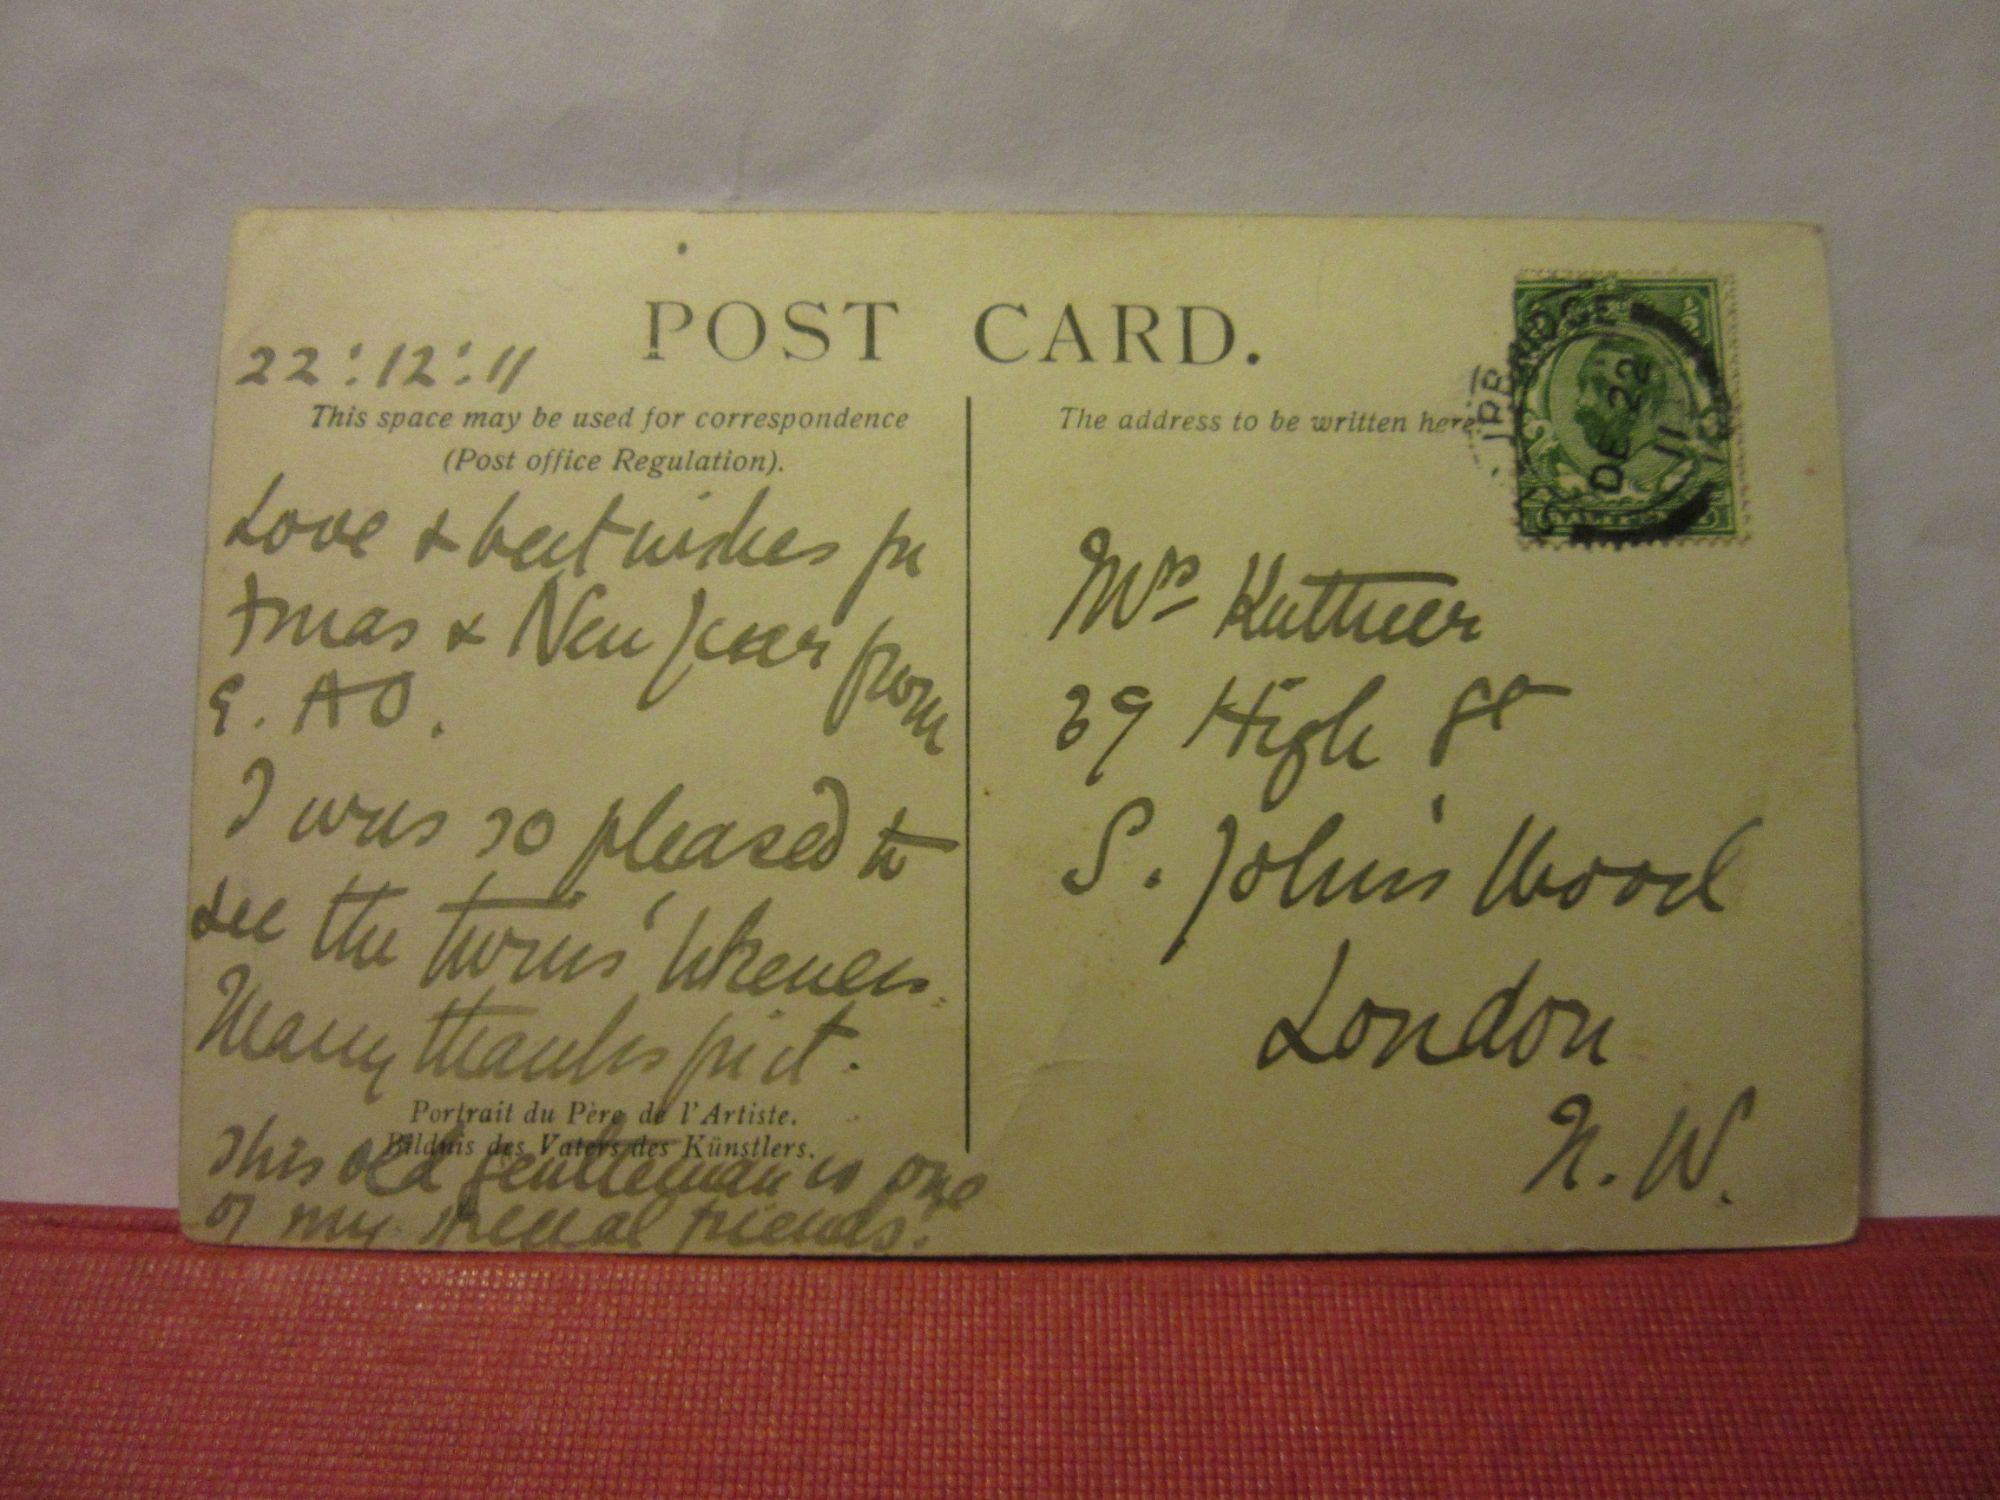 POST CARD.
22:12:11
This space may be used for correspondence
(Post office Regulation).
Love & best wishes for
Xmas & New Year from
E. AO.
I was so pleased to
see the twins' likeness.
Many thanks for it.
Portrait du Père de l'Artiste.
Bildnis des Vaters des Künstlers.
This old gentleman is one
of my special friends.
The address to be written here
DE 22
11
Mrs Kuttner
39 High St
S. John's Wood
London
N. W.